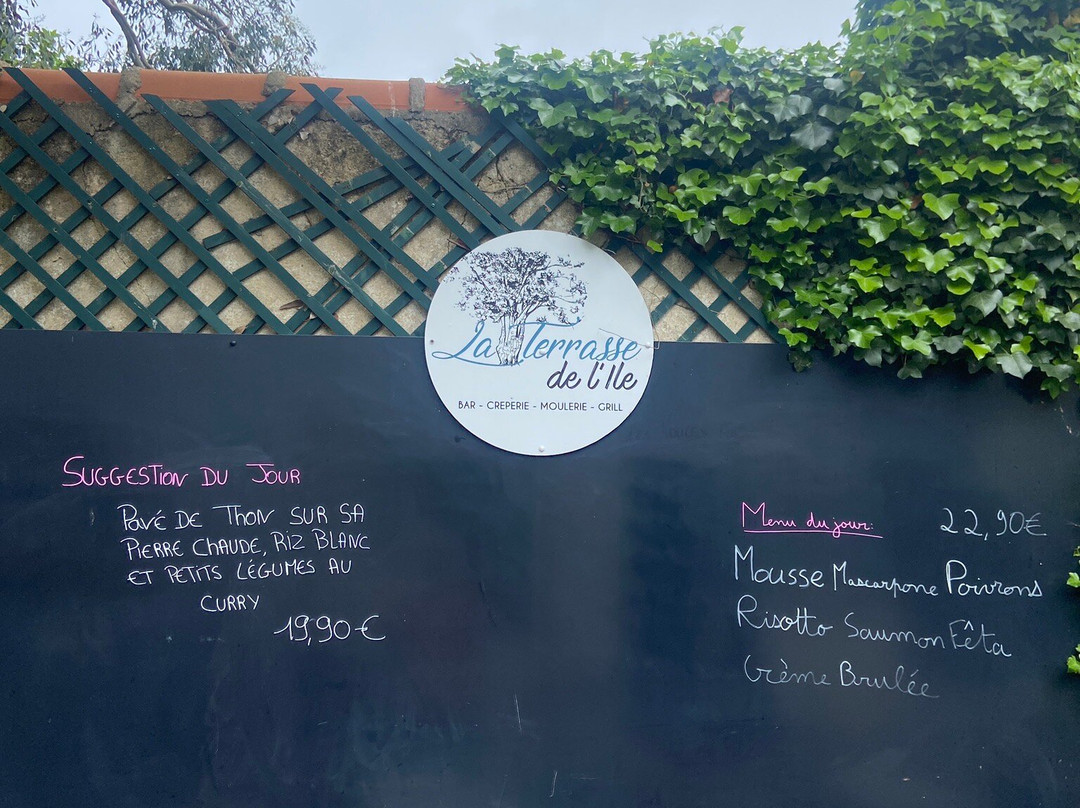 La Terrasse
de l'Ile
BAR - CREPERIE - MOULERIE - GRILL
SUGGESTION DU JOUR
PAVÉ DE THON SUR SA
PIERRE CHAUDE, RIZ BLANC
ET PETITS LÉGUMES AU
CURRY
19,90€
Menu du jour: 22,90€
Mousse Mascarpone Poivrons
Risotto Saumon Fêta
Crème Brulée